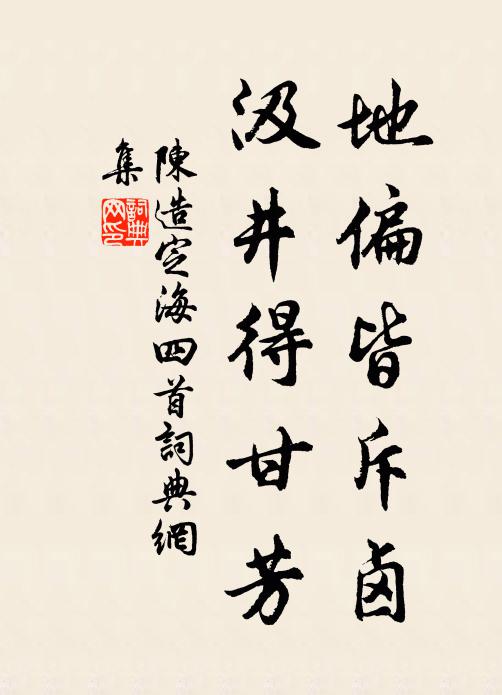 地偏皆斥鹵
汲井得甘芳
陳造定海四首詞典網
集
詞典
网印